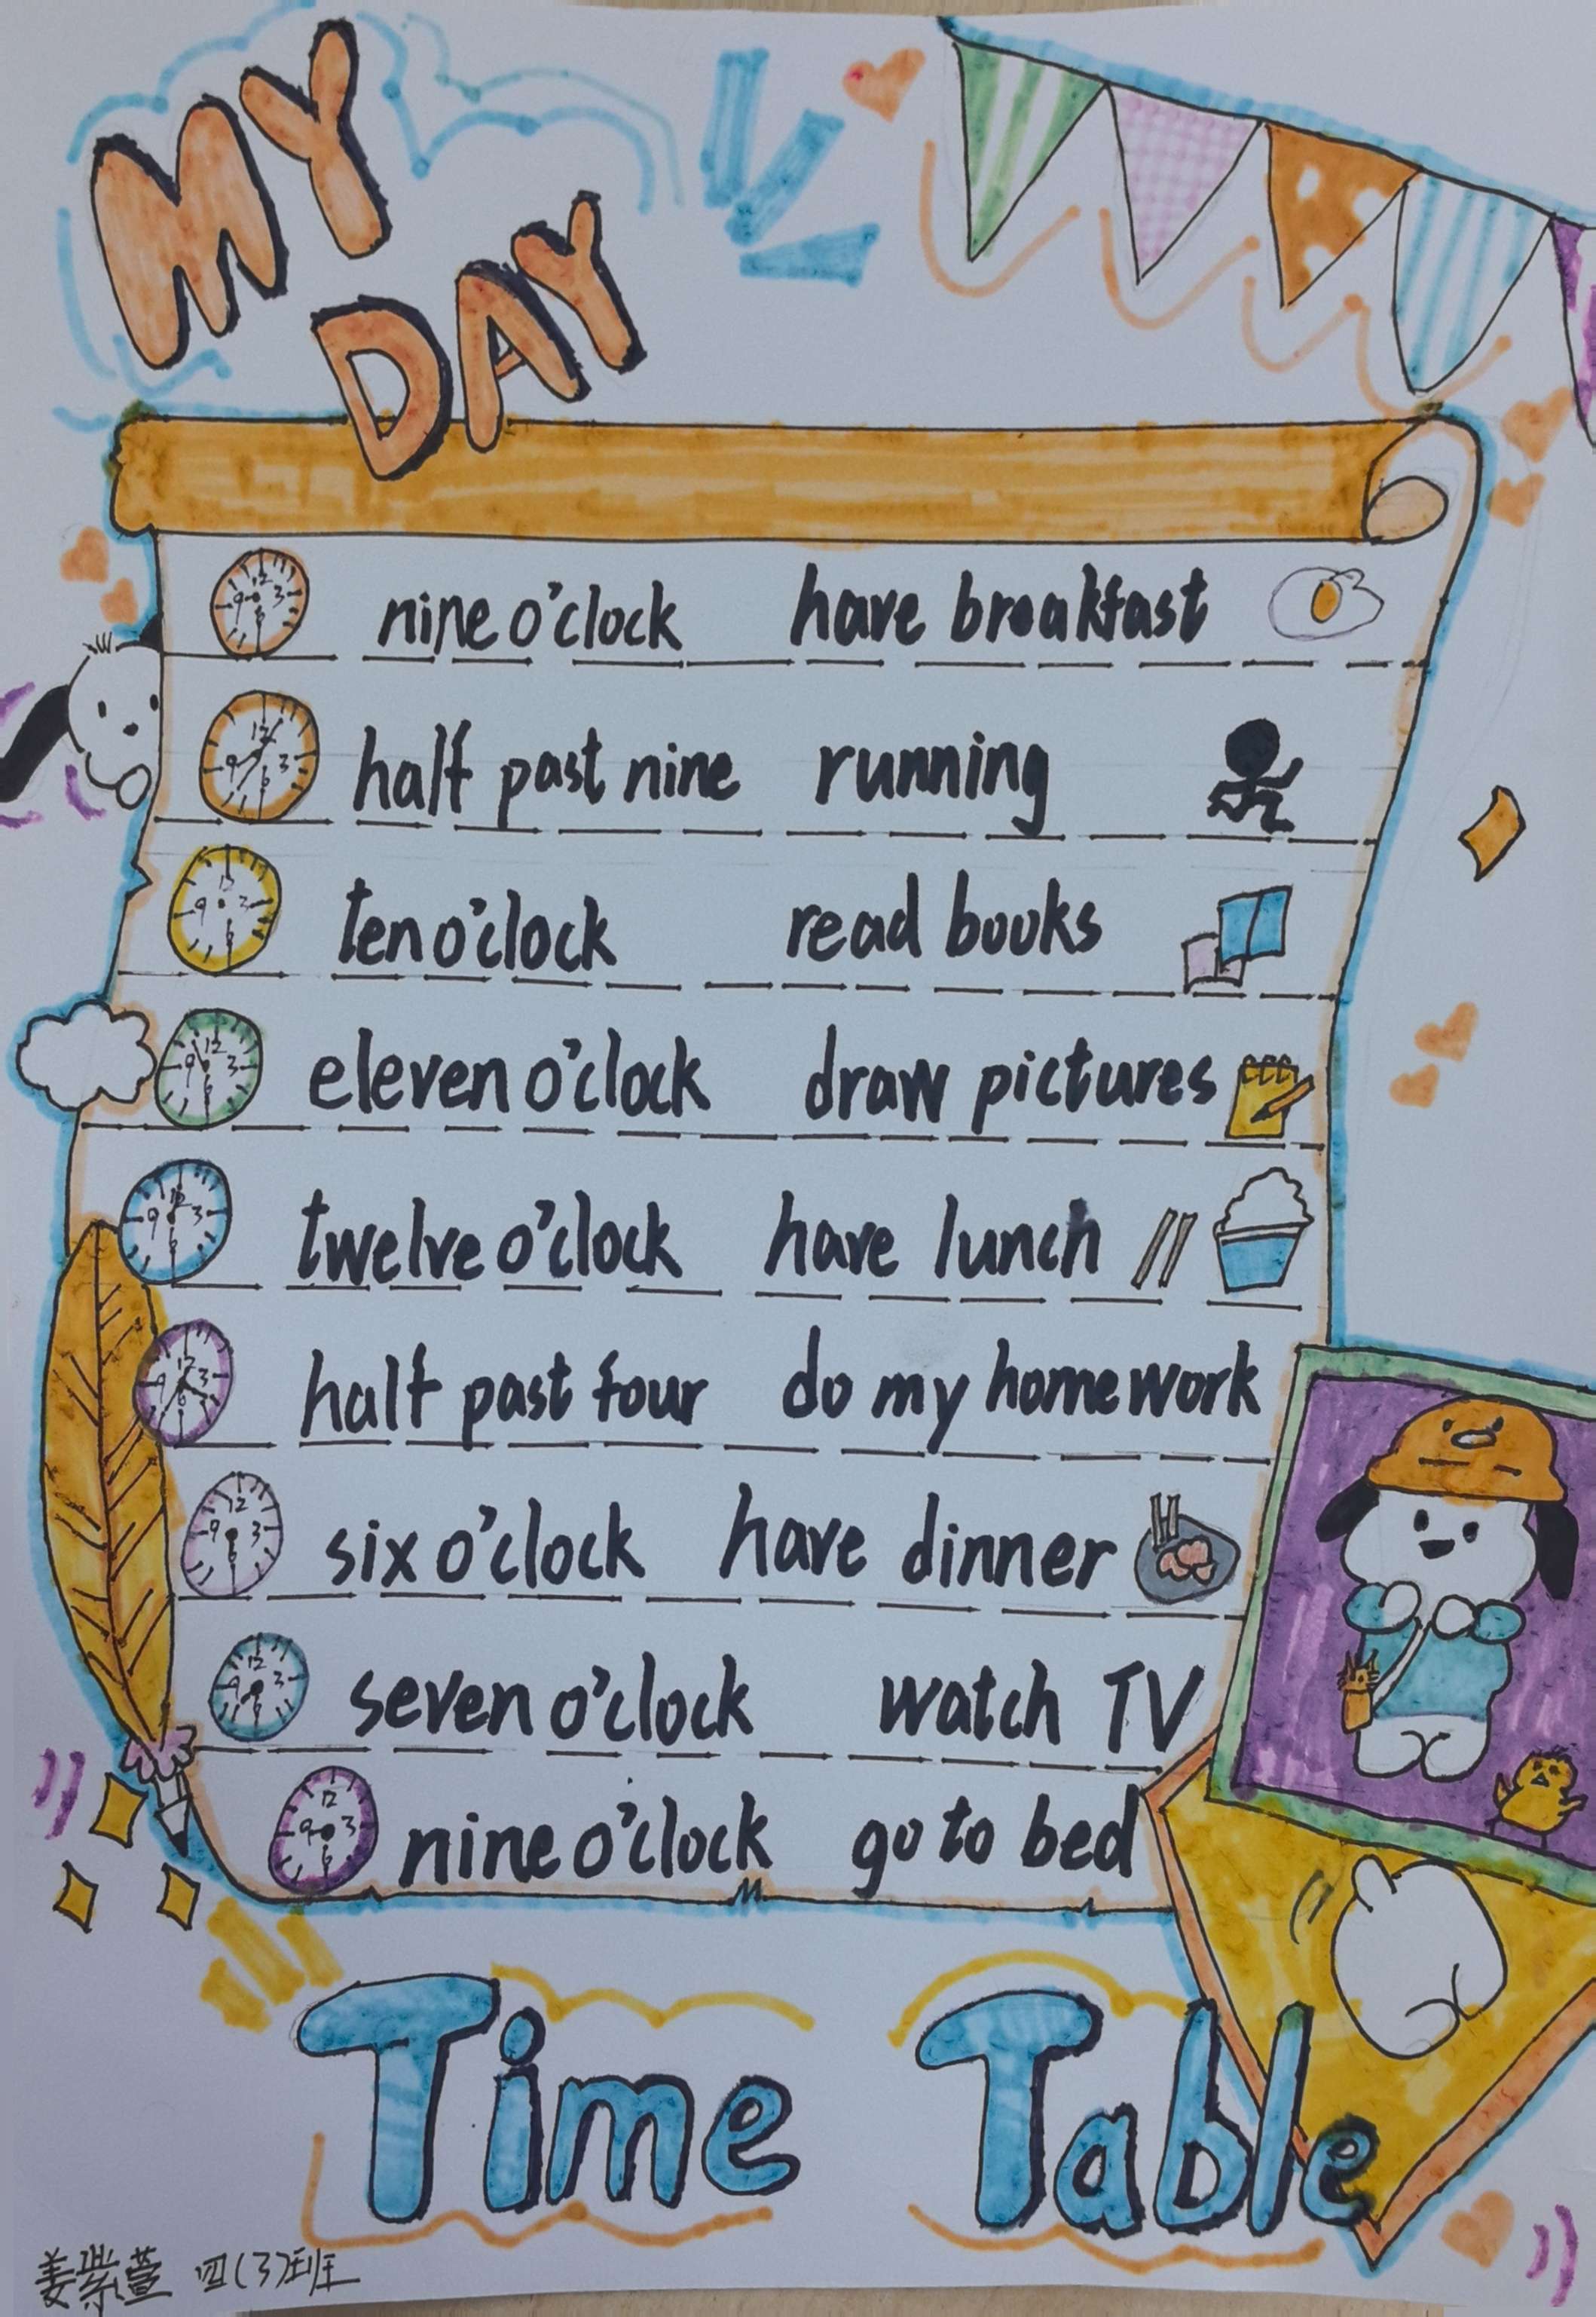 MY
DAY
nine o'clock have breakfast
half past nine running
ten o'clock read books
eleven o'clock draw pictures
twelve o'clock have lunch
half past four do my homework
six o'clock have dinner
seven o'clock watch TV
nine o'clock go to bed
Time Table
姜紫萱 四(3)班